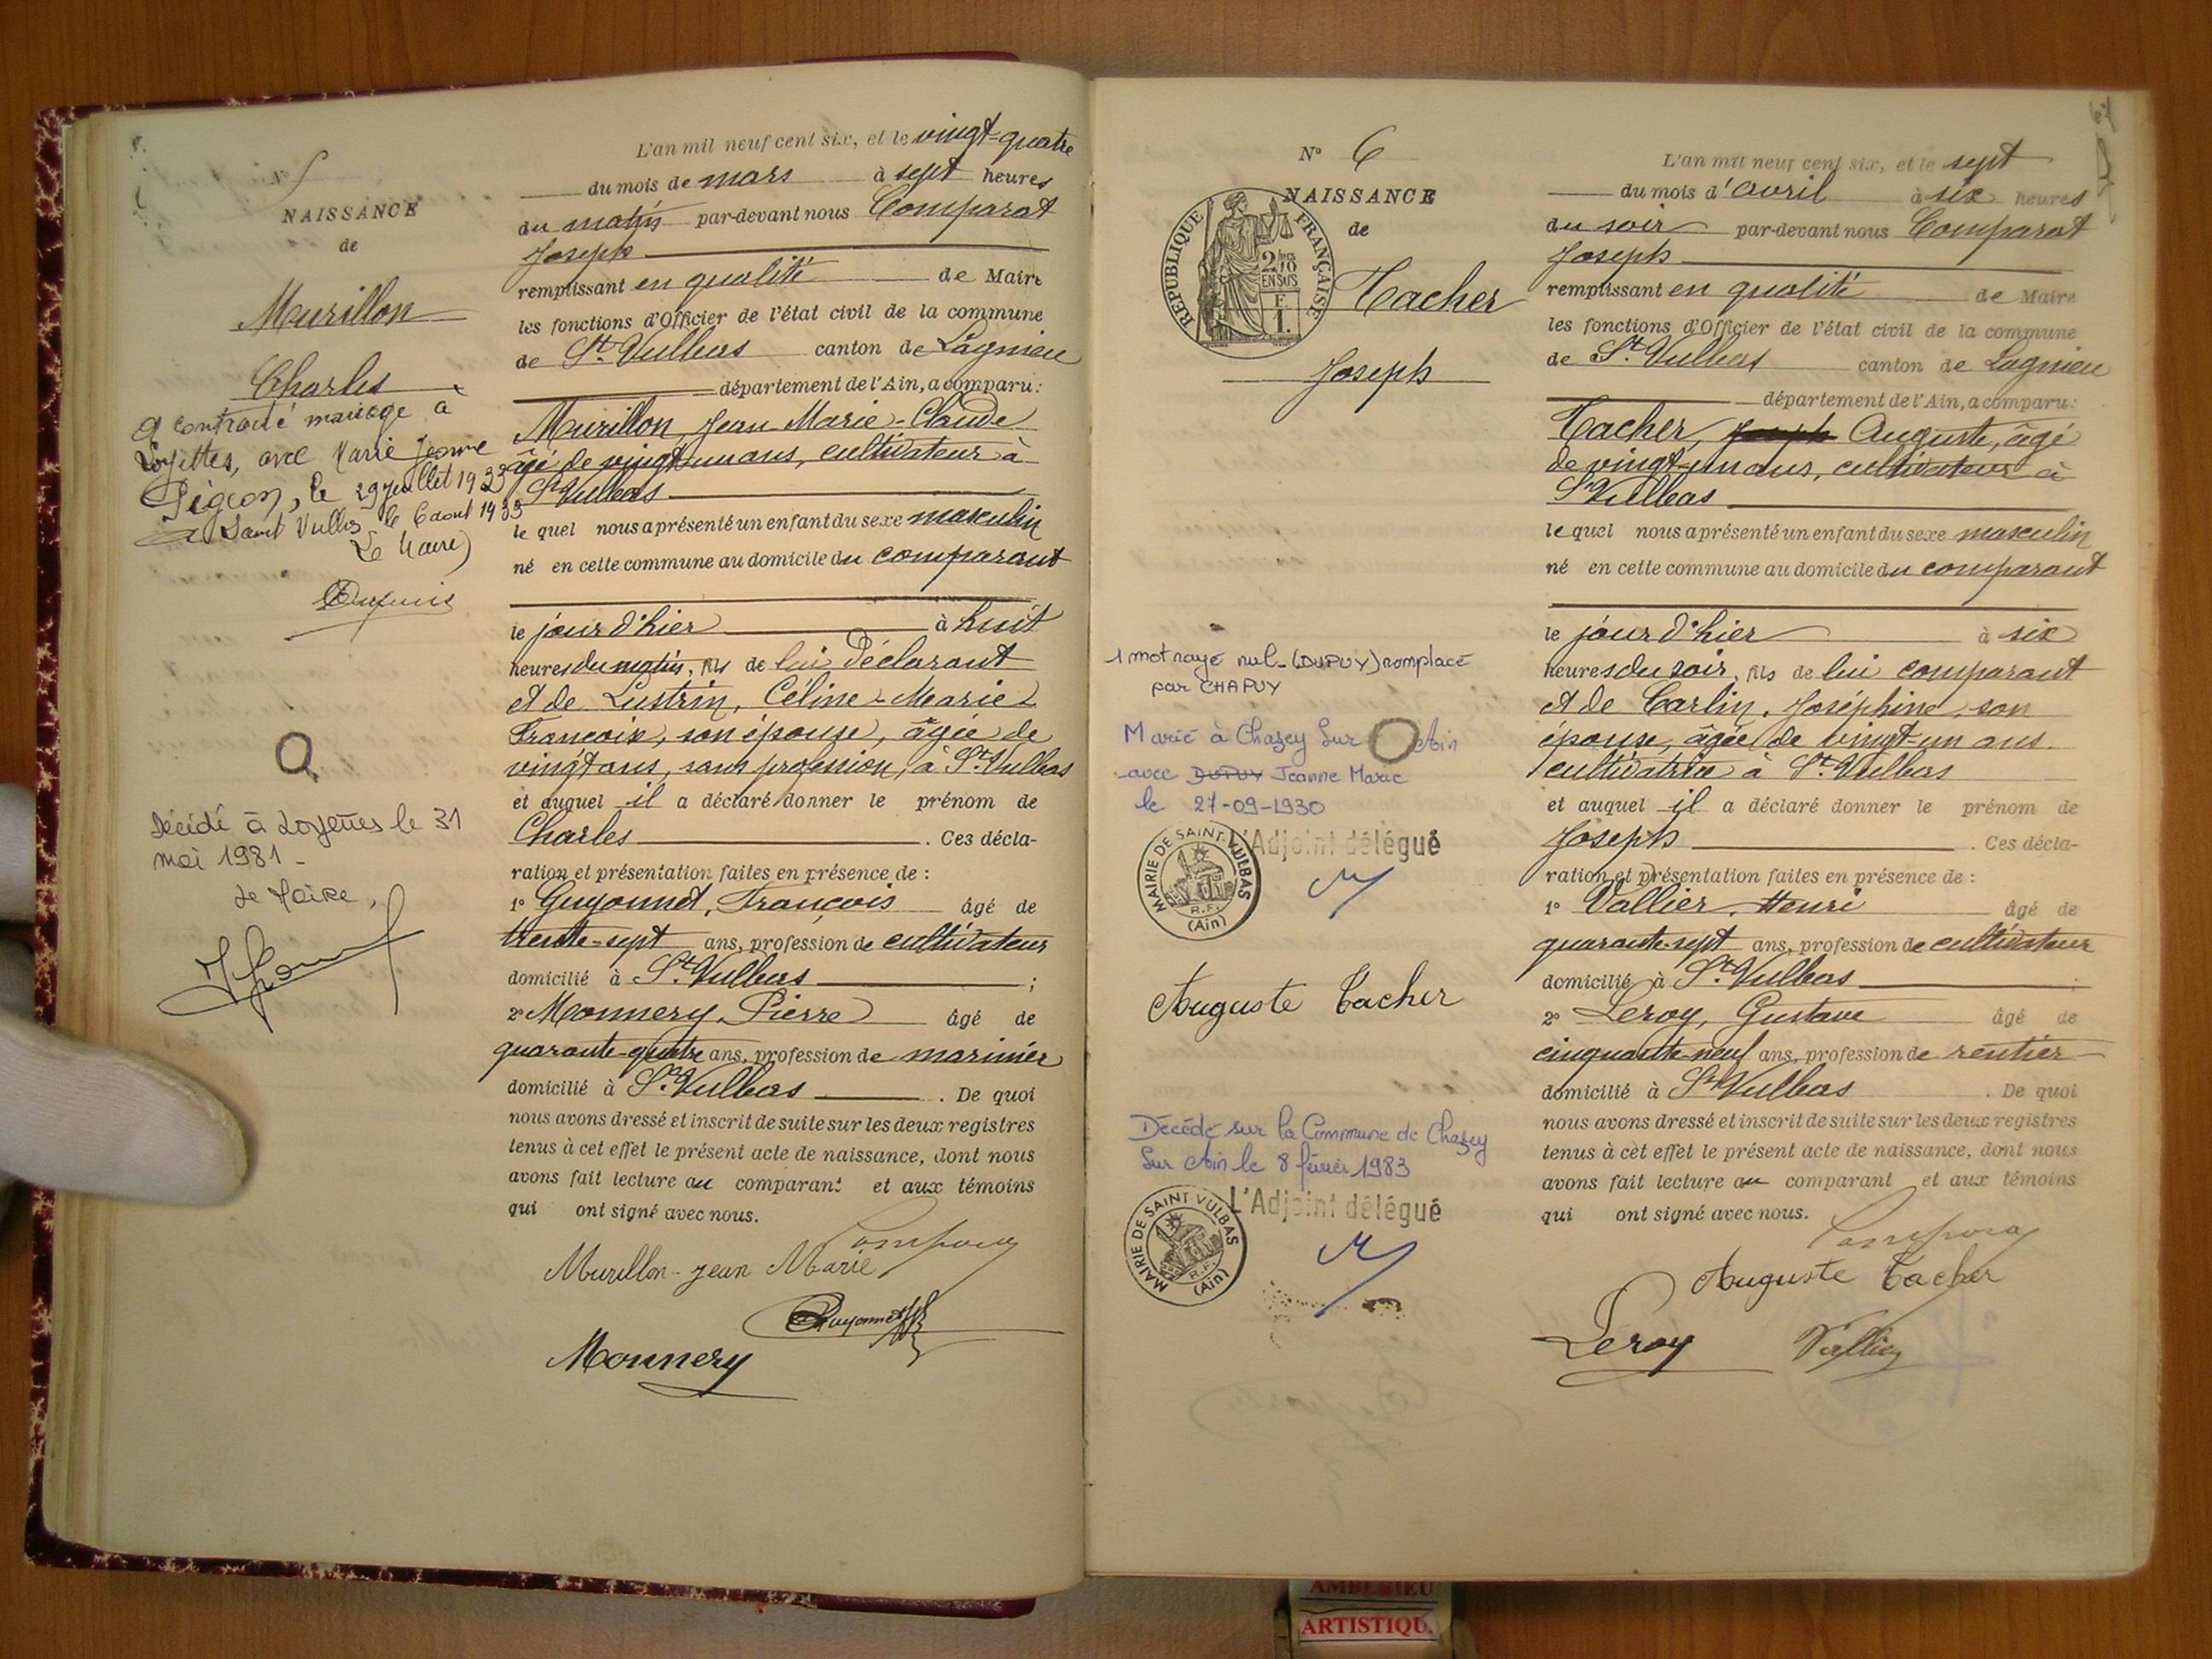 N° 5
NAISSANCE
de
Murillon
Charles
A contracté mariage à
Loyettes, avec Marie Jeanne
Pigeon, le 29 juillet 1933
à Saint Vulbas le 6 aout 1933
Le Maire
Dupuis
Décédé à Loyettes le 31
mai 1981 -
Le Maire,
L'an mil neuf cent six, et le vingt-quatre
du mois de mars à sept heures
du matin par-devant nous Comparat
Joseph
remplissant en qualité de Maire
les fonctions d'Officier de l'état civil de la commune
de St. Vulbas canton de Lagnieu
département de l'Ain, a comparu:
Murillon, Jean-Marie-Claude
âgé de vingt-un ans, cultivateur à
St Vulbas
le quel nous a présenté un enfant du sexe masculin
né en cette commune au domicile du comparant
le jour d'hier à huit
heures du matin, fils de lui Déclarant
et de Lustrin, Céline-Marie-
Françoise, son épouse, âgée de
vingt ans, sans profession, à St. Vulbas
et auquel il a déclaré donner le prénom de
Charles . Ces décla-
ration et présentation faites en présence de :
1° Guyonnet, François âgé de
trente-sept ans, profession de cultivateur
domicilié à St. Vulbas ;
2° Monnery, Pierre âgé de
quarante-quatre ans, profession de marinier
domicilié à St. Vulbas . De quoi
nous avons dressé et inscrit de suite sur les deux registres
tenus à cet effet le présent acte de naissance, dont nous
avons fait lecture au comparant et aux témoins
qui ont signé avec nous.
Comparat
Murillon-Jean Marie
Guyonnet
Monnery
N° 6
NAISSANCE
de
RÉPUBLIQUE FRANÇAISE
2/10
EN SUS
F.
1.
Tacher
Joseph
1 mot rayé nul - (DUPUY) remplacé
par CHAPUY
Marié à Chazey Sur Ain
avec DUPUY Jeanne Marie
le 27-09-1930
L'Adjoint délégué
MAIRIE DE SAINT-VULBAS
R.F.
(Ain)
Auguste Tacher
Décédé sur la Commune de Chazey
Sur Ain le 8 février 1983
L'Adjoint délégué
MAIRIE DE SAINT-VULBAS
R.F.
(Ain)
L'an mil neuf cent six, et le sept
du mois d'avril à six heures
du soir par-devant nous Comparat
Joseph
remplissant en qualité de Maire
les fonctions d'Officier de l'état civil de la commune
de St. Vulbas canton de Lagnieu
département de l'Ain, a comparu:
Tacher, Joseph Auguste, âgé
de vingt-un ans, cultivateur à
St Vulbas
le quel nous a présenté un enfant du sexe masculin
né en cette commune au domicile du comparant
le jour d'hier à six
heures du soir, fils de lui comparant
et de Carlin, Joséphine, son
épouse, âgée de vingt-un ans.
cultivatrice à St. Vulbas
et auquel il a déclaré donner le prénom de
Joseph . Ces décla-
ration et présentation faites en présence de :
1° Vallier, Henri âgé de
quarante-sept ans, profession de cultivateur
domicilié à St. Vulbas ;
2° Leroy, Gustave âgé de
cinquante-neuf ans, profession de rentier
domicilié à St Vulbas . De quoi
nous avons dressé et inscrit de suite sur les deux registres
tenus à cet effet le présent acte de naissance, dont nous
avons fait lecture au comparant et aux témoins
qui ont signé avec nous.
Comparat
Auguste Tacher
Leroy Vallier
AMBERIEU
ARTISTIQU